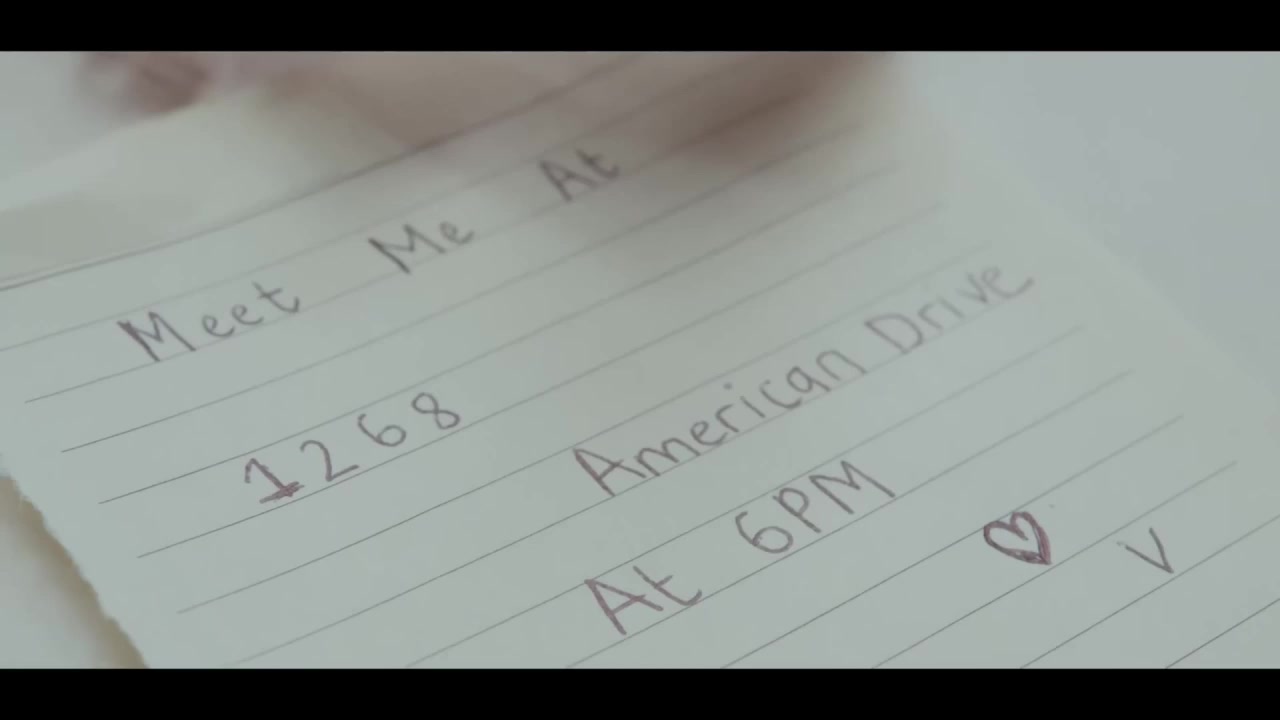 Meet Me At
1268
American Drive
At 6PM
♡ V